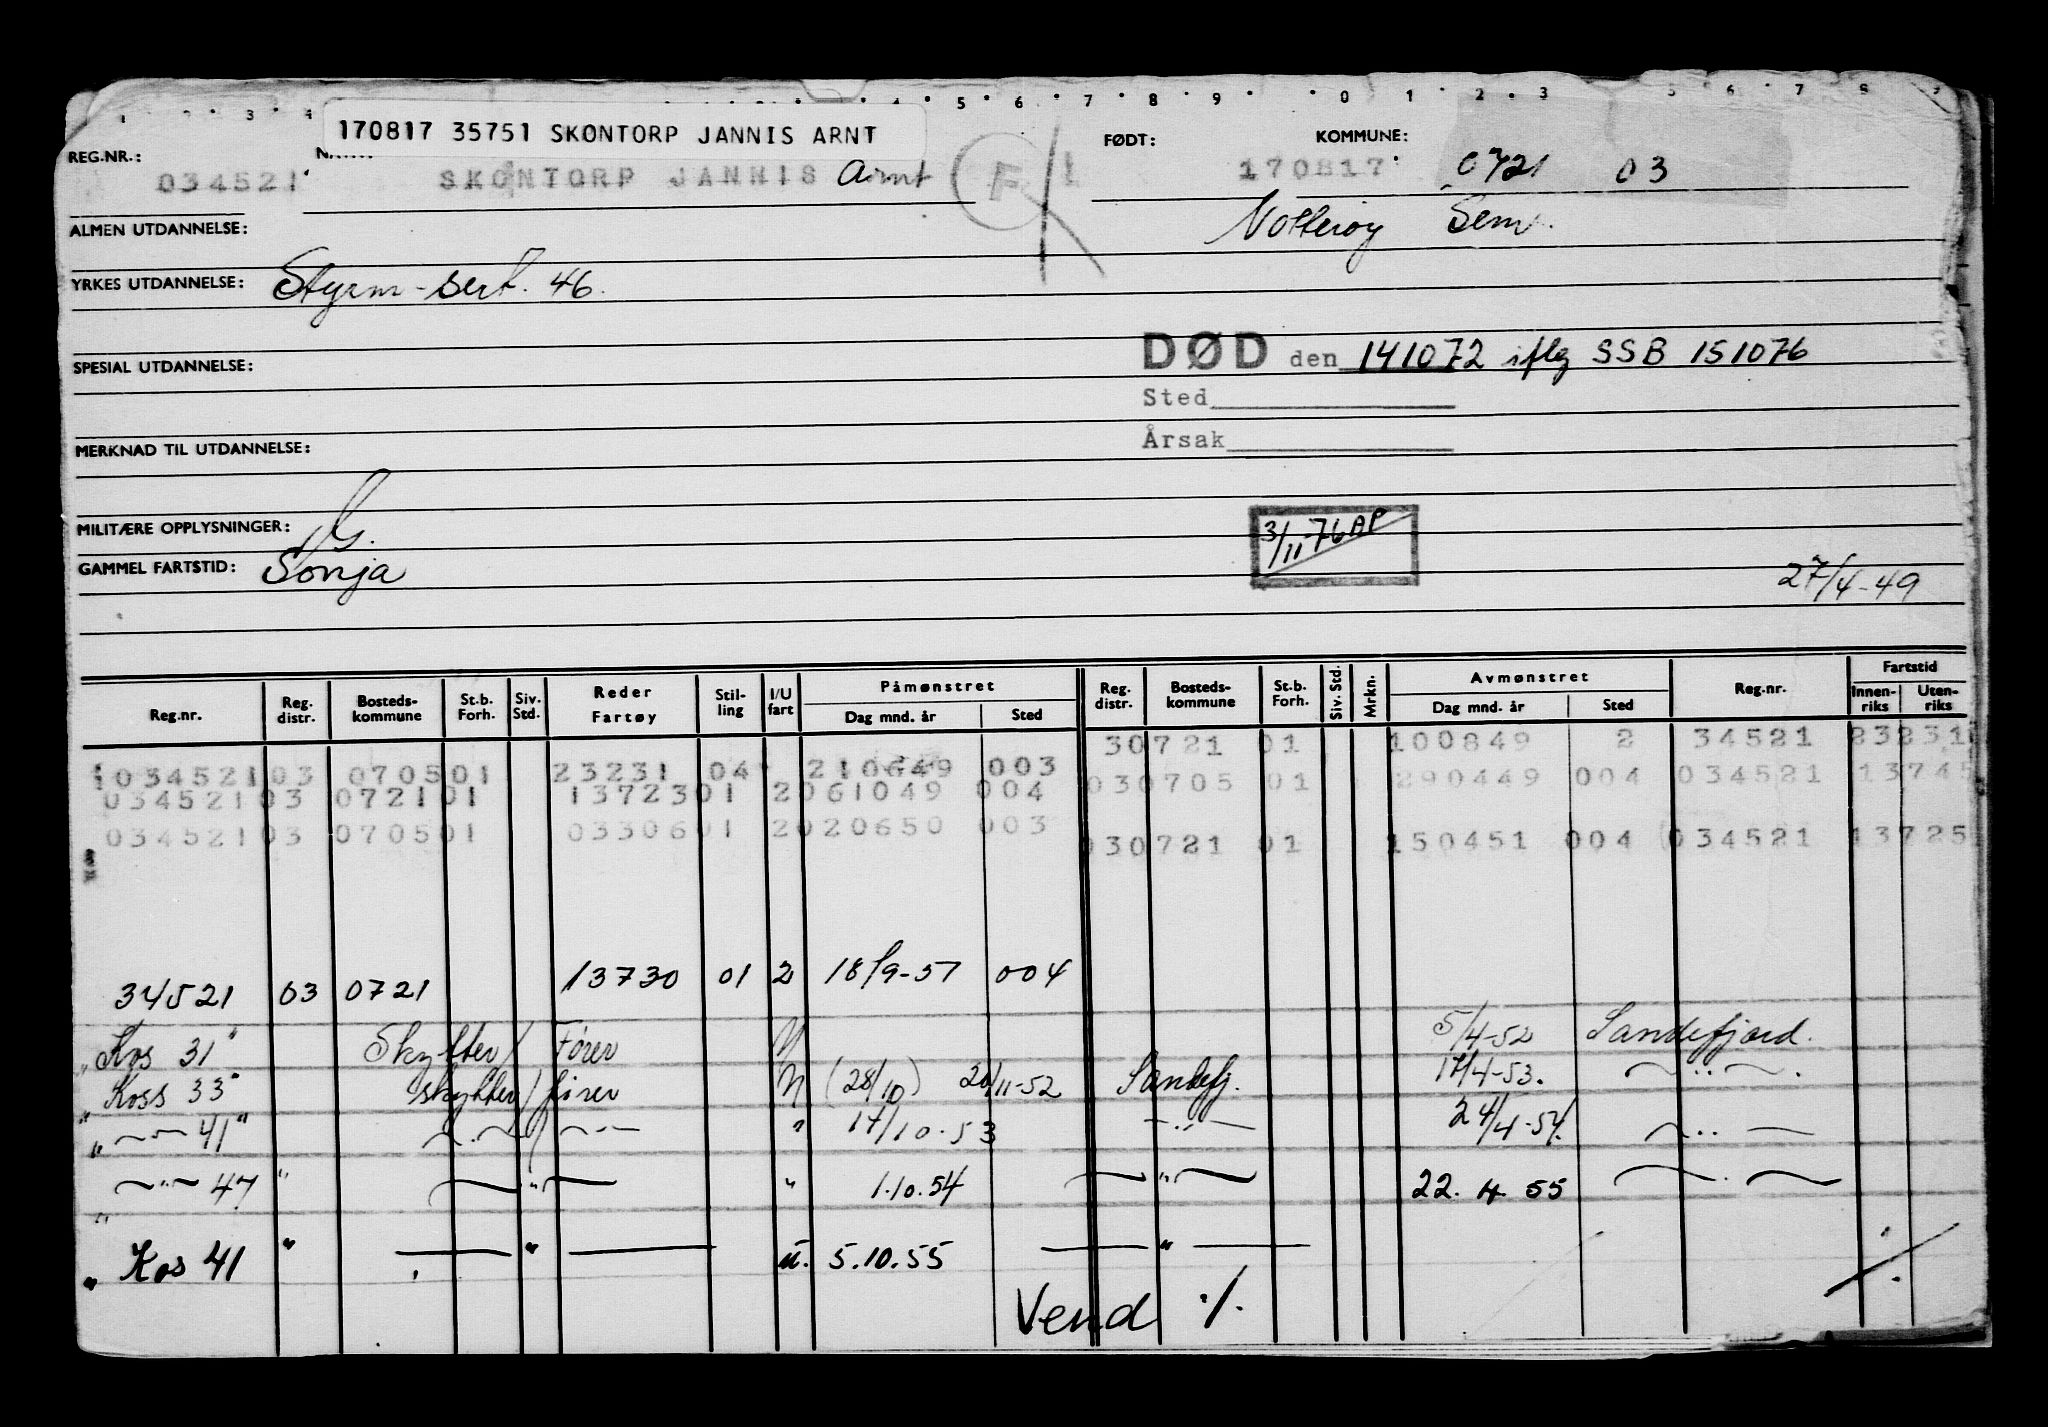 1 2 3 4 5 6 7 8 9 0 1 2 3 5 6 7 8 9
170817 35751 SKONTORP JANNIS ARNT
REG.NR.: FØDT: KOMMUNE:
034521 SKONTORP JANNIS Arnt F 170817 0721 03
ALMEN UTDANNELSE: Nøtterøy Sem
YRKES UTDANNELSE: Styrm-sert. 46.
DØD den 141072 iflg SSB 151076
SPESIAL UTDANNELSE:
Sted
Årsak
MERKNAD TIL UTDANNELSE:
MILITÆRE OPPLYSNINGER:
3/11-76 AP
GAMMEL FARTSTID: Sonja 27/4-49
Reg.nr. Reg. distr. Bosteds-kommune St.b. Forh. Siv. Std. Reder Fartøy Stil-ling I/U fart Påmønstret Dag mnd. år Sted Reg. distr. Bosteds-kommune St.b. Forh. Siv. Std. Mrkn. Avmønstret Dag mnd. år Sted Reg.nr. Fartstid Innen-riks Uten-riks
30721 01 100849 2 34521 23231
034521 03 0705 01 23231 04 210649 003
030705 01 290449 004 034521 13745
034521 03 0721 01 13723 01 2 061049 004
034521 03 0705 01 03306 01 2 020650 003
030721 01 150451 004 034521 13725
34521 03 0721 13730 01 2 18/9-51 004
"Kos 31" Skytter/Fører U 5/4-52 Sandefjord.
"Koss 33" skytter/fører U (28/10) 20/11-52 Sandefj. 17/4-53. — " —.
" — " — 41" — " — / — " — " 17/10-53 — " — 24/4-54. — " —
" — " — 47" — " — " 1.10.54 — " — 22.4.55 — " —
"Kos 41" — " — u. 5.10.55 — " —
Vend ./.